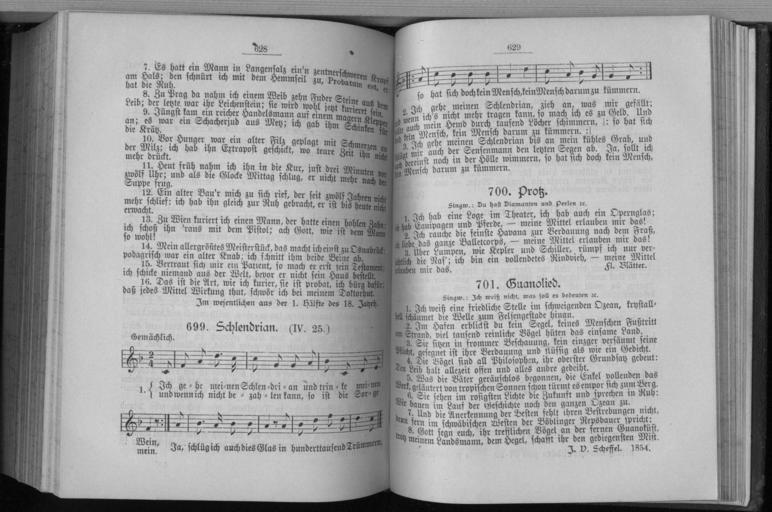 628
7. Es hatt ein Mann in Langensalz ein'n zentnerschweren Kropf
am Hals; den schnürt ich mit dem Hemmseil zu, Probatum est, er
hat die Ruh.
8. Zu Prag da nahm ich einem Weib zehn Fuder Steine aus dem
Leib; der letzte war ihr Leichenstein; sie wird wohl jetzt kurieret sein.
9. Jüngst kam ein reicher Handelsmann auf einem magern Klepper
an; es war ein Schacherjud aus Metz; ich gab ihm Schinken für
die Krätz.
10. Vor Hunger war ein alter Filz geplagt mit Schmerzen an
der Milz; ich hab ihn Extrapost geschickt, wo teure Zeit ihn nicht
mehr drückt.
11. Heut früh nahm ich ihn in die Kur, just drei Minuten vor
zwölf Uhr; und als die Glock Mittag schlug, er nicht mehr nach der
Suppe frug.
12. Ein alter Bau'r mich zu sich rief, der seit zwölf Jahren nicht
mehr schlief: ich hab ihn gleich zur Ruh gebracht, er ist bis heute nicht
erwacht.
13. Zu Wien kuriert ich einen Mann, der hatte einen hohlen Zahn;
ich schoß ihn 'raus mit dem Pistol; ach Gott, wie ist dem Mann
so wohl!
14. Mein allergrößtes Meisterstück, das macht ich einst zu Osnabrück:
podagrisch war ein alter Knab; ich schnitt ihm beide Beine ab.
15. Vertraut sich mir ein Patient, so mach er erst sein Testament;
ich schicke niemand aus der Welt, bevor er nicht sein Haus bestellt.
16. Das ist die Art, wie ich kurier, sie ist probat, ich bürg dafür;
daß jedes Mittel Wirkung thut, schwör ich bei meinem Doktorhut.
Im wesentlichen aus der 1. Hälfte des 18. Jahrh.
699. Schlendrian. (IV. 25.)
Gemächlich.
1. { Ich ge = he mei=nen Schlen = dri = an und trin = ke mei=nen
und wenn ich nicht be = zah = len kann, so ist die Sor=ge
Wein,
mein. Ja, schlüg ich auch dies Glas in hunderttausend Trümmern,
629
so hat sich doch kein Mensch, kein Mensch darum zu kümmern.
2. Ich gehe meinen Schlendrian, zieh an, was mir gefällt;
wenn ich's nicht mehr tragen kann, so mach ich es zu Geld. Und
auch mein Hemd durch tausend Löcher schimmern, |: so hat sich
kein Mensch, kein Mensch darum zu kümmern. :|
3. Ich gehe meinen Schlendrian bis an mein kühles Grab, und
mir auch der Sensenmann den letzten Segen ab. Ja, sollt ich
dereinst noch in der Hölle wimmern, so hat sich doch kein Mensch,
Mensch darum zu kümmern.
700. Protz.
Singw.: Du hast Diamanten und Perlen ec.
1. Ich hab eine Loge im Theater, ich hab auch ein Opernglas;
hab Equipagen und Pferde, — meine Mittel erlauben mir das!
2. Ich rauche die feinste Havana zur Verdauung nach dem Fraß,
liebe das ganze Balletcorps, — meine Mittel erlauben mir das!
3. Über Lumpen, wie Kepler und Schiller, rümpf ich nur ver-
die Nas'; ich bin ein vollendetes Rindvieh, — meine Mittel
erlauben mir das. Fl. Blätter.
701. Guanolied.
Singw.: Ich weiß nicht, was soll es bedeuten ec.
1. Ich weiß eine friedliche Stelle im schweigenden Ozean, krystall-
hell schäumet die Welle zum Felsengestade hinan.
2. Im Hafen erblickst du kein Segel, keines Menschen Fußtritt
am Strand, viel tausend reinliche Vögel hüten das einsame Land.
3. Sie sitzen in frommer Beschauung, kein einzger versäumt seine
Pflicht, gesegnet ist ihre Verdauung und flüssig als wie ein Gedicht.
4. Die Vögel sind all Philosophen, ihr oberster Grundsatz gebeut:
Den Leib halt allezeit offen und alles andre gedeiht.
5. Was die Väter geräuschlos begonnen, die Enkel vollenden das
Werk, geläutert von tropischen Sonnen schon türmt es empor sich zum Berg.
6. Sie sehen im rosigsten Lichte die Zukunft und sprechen in Ruh:
Wir bauen im Lauf der Geschichte noch den ganzen Ozean zu.
7. Und die Anerkennung der Besten fehlt ihren Bestrebungen nicht,
denn fern im schwäbischen Westen der Böblinger Repsbauer spricht:
8. Gott segn euch, ihr trefflichen Vögel an der fernen Guanoküst,
trotz meinem Landsmann, dem Hegel, schafft ihr den gediegensten Mist.
J. V. Scheffel. 1854.